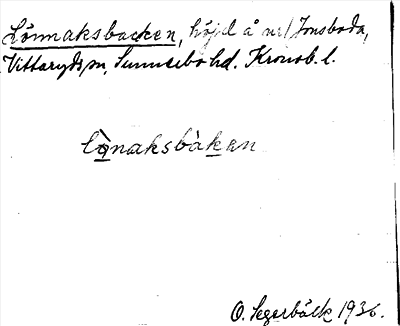 Lönnaksbacken, höjd å nr 1 Jonsboda,
Vittaryds sn, Sunnerbo hd. Kronob. l.
lònaksbàken
O. Segerbäck 1936.